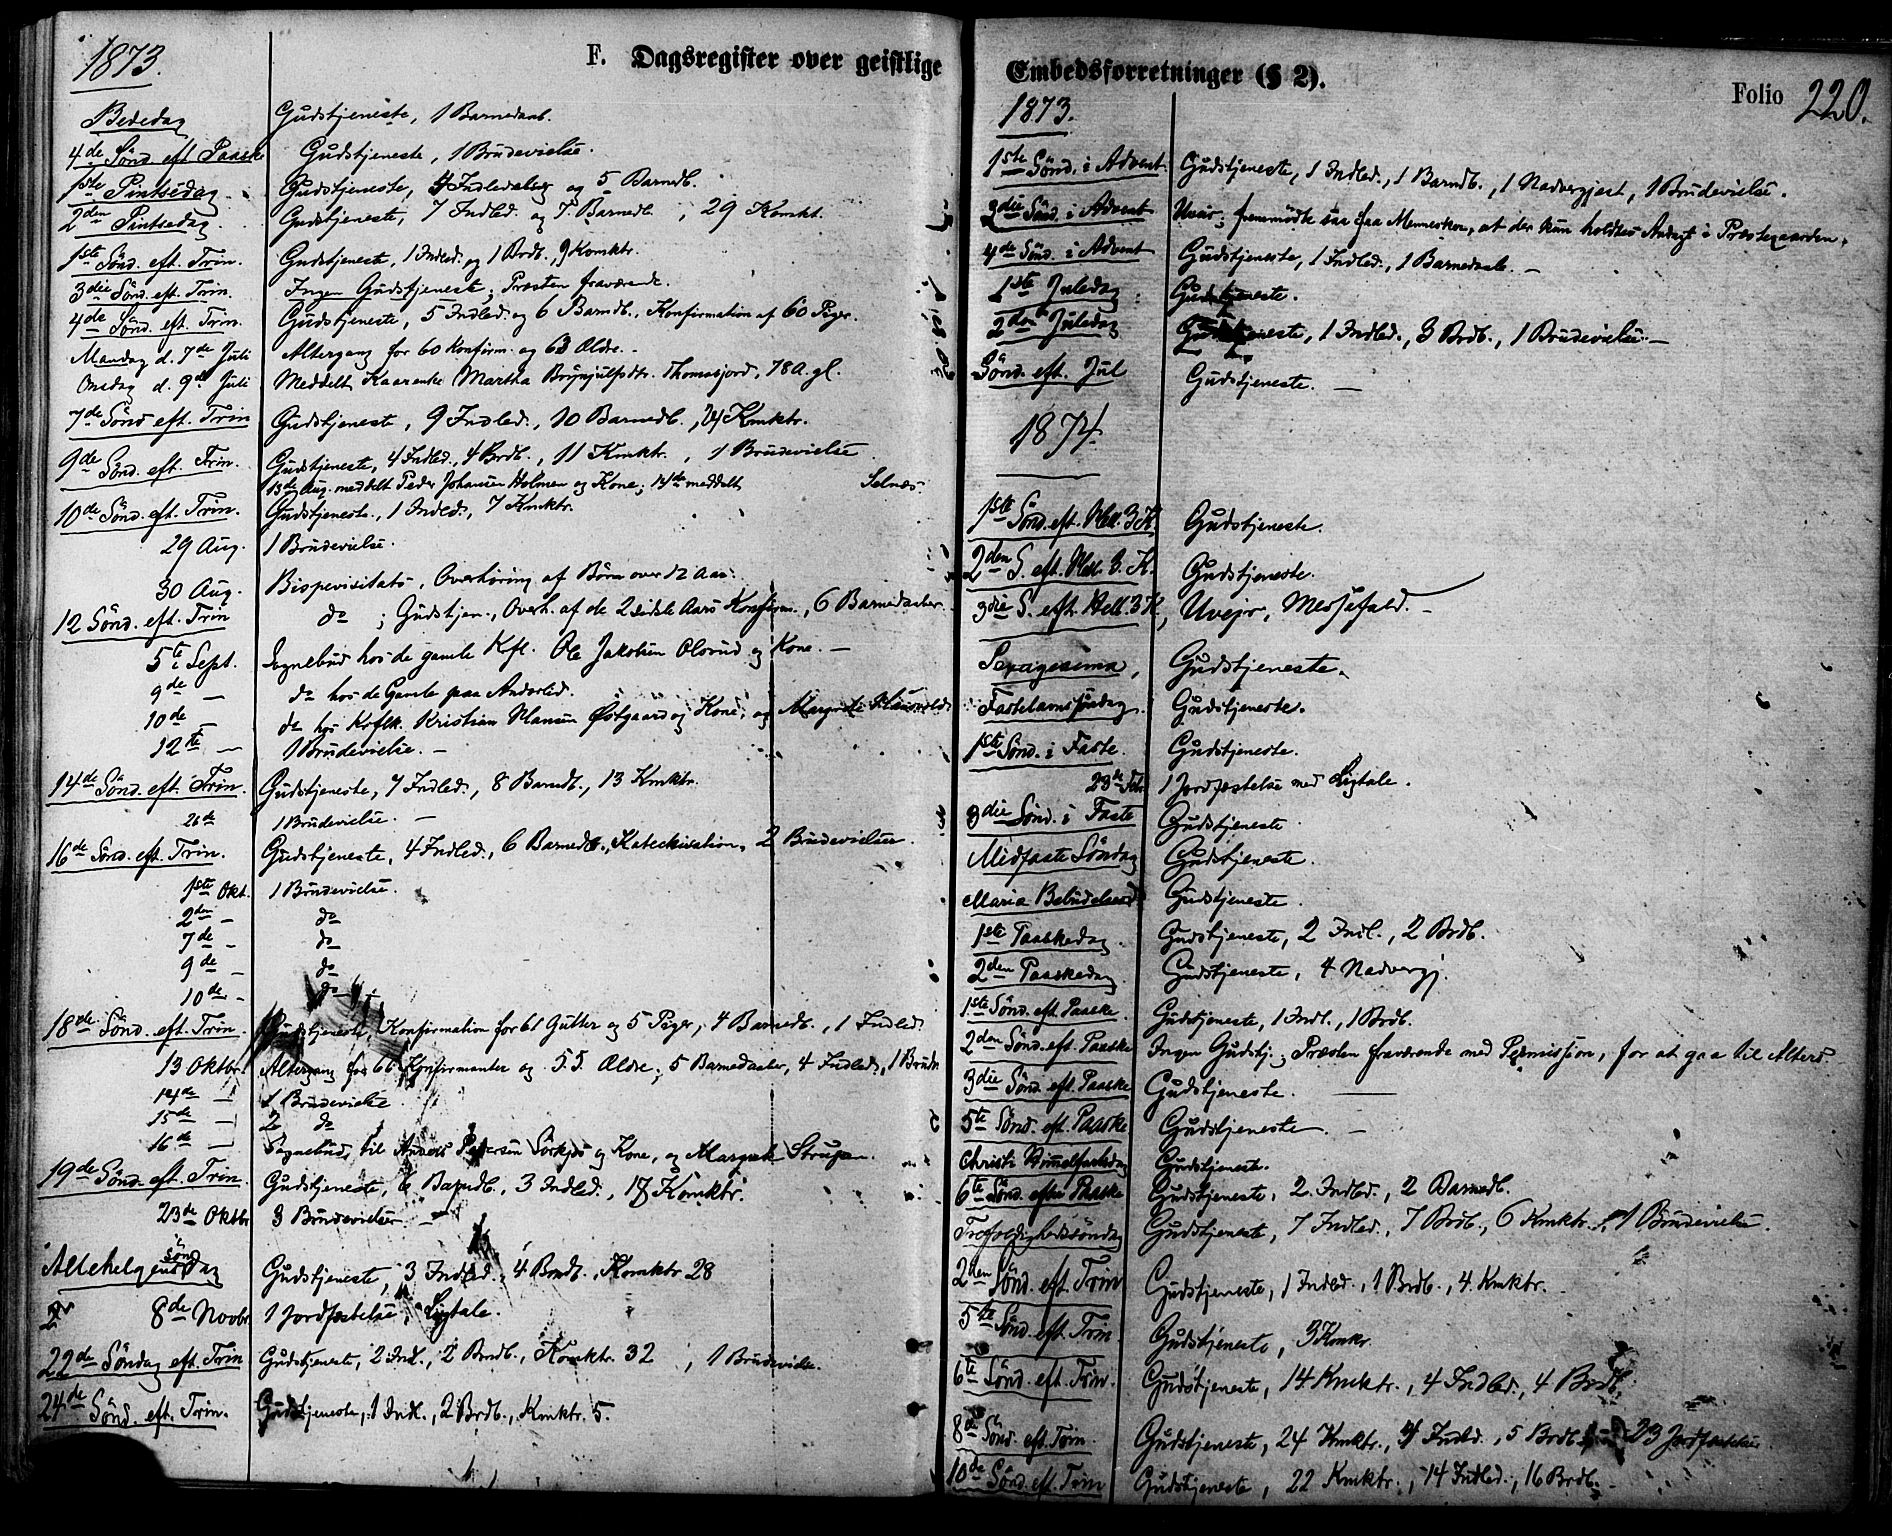 F. Dagsregister over geistlige
1873.
Bededag Gudstjeneste, 1 Barnedaab.
4de Sönd. eft. Paaske Gudstjeneste, 1 Brudevielse.
1ste Pintsedag Gudstjeneste, 4 Indledelser og 5 Barndb.
2den Pintsedag. Gudstjeneste, 7 Indled. og 7. Barnedb., 29 Komkt.
1ste Sönd. eft. Trin. Gudstjeneste, 1 Indled. og 1 Brdb., 9 Komktr.
3die Sönd. eft. Trin. Ingen Gudstjeneste; Præsten fraværende.
4de Sönd. eft. Trin. Gudstjeneste, 5 Indled. og 6 Barndb., Konfirmation af 60 Piger.
Mandag d. 7de Juli Altergang for 60 Konfirm. og 63 Ældre.
Onsdag d. 9de Juli Meddelt Martha Brynjulfsdtr. Thomasjord, 78 A. gl.
7de Sönd eft. Trin Gudstjeneste, 9 Indled., 10 Barnedb., 24 Kmktr.
9de Sönd. eft. Trin. Gudstjeneste, 4 Indled., 4 Brdb., 11 Kmktr., 1 Brudevielse
13de Aug. meddelt Peder Johansen Holmen og Kone; 14de meddelt Selnæs.
10de Sönd. eft. Trin. Gudstjeneste., 1 Indled., 7 Kmktr.
29 Aug. 1 Brudevielse.
30 Aug. Bispevisitats, Overhöring af Börn over 12 Aar.
12 Sönd. eft. Trin do ; Gudstjen., Overh. af de 2 sidste Aars Konfirm., 6 Barnedaaber
5te Sept. Sognebud hos de gamle Kfl. Ole Jakobsen og Kone. —
9de — do hos de Gamle paa
10de — do hos Kristian Hansen Östgaard og Kone; og
12te — 1 Brudevielse. —
14de Sönd. eft. Trin. Gudstjeneste, 7 Indled., 8 Barndb., 13 Kmktr.
26de 1 Brudevielse. —
16de Sönd. eft. Trin. Gudstjeneste, 4 Indled., 6 Barnedb., Katechisation, 2 Brudevielser.
1ste Okt. 1 Brudevielse.
2den — do
7de — do
9de — do
10de — do
18de Sönd. eft. Trin. Gudstjeneste, Konfirmation for 61 Gutter og 5 Piger, 4 Barnedb., 1 Indled.
13 Oktbr. Altergang for 66 Konfirmanter og 55 Ældre; 5 Barnedaaber, 4 Indled., 1 Brudv.
14de — 1 Brudevielse
15de — 2 do
16de — Sognebud, til Anders Pedersen og Kone, og
19de Sönd. eft. Trin. Gudstjeneste, 6 Barndb., 3 Indled., 17 Komktr.
23de Oktbr 3 Brudevielser —
Allehelgens Sönddag Gudstjeneste, 3 Indled., 4 Brndb., Komktr 28
8de Novbr 1 Jordfæstelse, Ligtale.
22de Söndag eft. Trin Gudstjeneste, 2 Indl., 2 Brndb., Komktr. 32, 1 Brudevielse.
24de Sönd. eft. Trin. Gudstjeneste, 1 Indl., 2 Brdb., Kmktr. 5.
Embedsforretninger (§ 2).
Folio 220.
1873.
1ste Sönd. i Advent Gudstjeneste, 1 Indled., 1 Barndb., 1 Nadvergjest, 1 Brudevielse.
3die Sönd. i Advent Uveir; fremmödte saa faa Mennesker, at der kun holdtes Andagt i Præstegaarden.
4de Sönd. i Advent Gudstjeneste, 1 Indled., 1 Barnedaab. —
1ste Juledag Gudstjeneste.
2den Juledag Gudstjeneste, 1 Indled., 3 Brdb., 1 Brudevielse. —
Sönd. eft. Jul Gudstjeneste. —
1874.
1ste Sönd. eft. Hell. 3 K. Gudstjeneste.
2den S. eft. Hell. 3. K. Gudstjeneste.
3die S. eft. Hell. 3 K, Uvejr, Messefald. —
Sexagesima, Gudstjeneste.
Fastelavnssöndag. Gudstjeneste.
1ste Sönd. i Faste. Gudstjeneste.
23de Febr. 1 Jordfæstelse med Ligtale.
3die Sönd. i Faste Gudstjeneste.
Midfaste Söndag Gudstjeneste.
Maria Bebudelsesd. Gudstjeneste.
1ste Paaskedag. Gudstjeneste, 2 Indl., 2 Brdb.
2den Paaskedag Gudstjeneste, 4 Nadvergj.
1ste Sönd. eft. Paaske. Gudstjeneste, 1 Indl., 1 Brdb.
2den Sönd. eft. Paaske Ingen Gudstj.; Præsten fraværende med Permission, for at gaa til Alters.
3die Sönd. eft. Paaske Gudstjeneste. —
5te Sönd. eft. Paaske Gudstjeneste. —
Christi Himmelfartsdag Gudstjeneste.
6te Sönd. efter Paaske Gudstjeneste, 2 Indled., 2 Barnedb.
Trefoldighedssöndag Gudstjeneste, 7 Indled., 7 Brdb., 6 Kmktr., 1 Brudevielse.
2den Sönd. eft. Trin Gudstjeneste, 1 Indled., 1 Brdb., 4 Kmktr.
5te Sönd. eft. Trin. Gudstjeneste, 3 Kmkr.
6te Sönd. eft. Trin. Gudstjeneste, 14 Kmktr., 4 Indled., 4 Brdb.
8de Sönd. eft. Trin. Gudstjeneste, 24 Kmktr., 4 Indled., 5 Brdb., Jordfæstelse.
10de Sönd. eft. Trin Gudstjeneste, 22 Kmktr., 14 Indled., 16 Brdb.